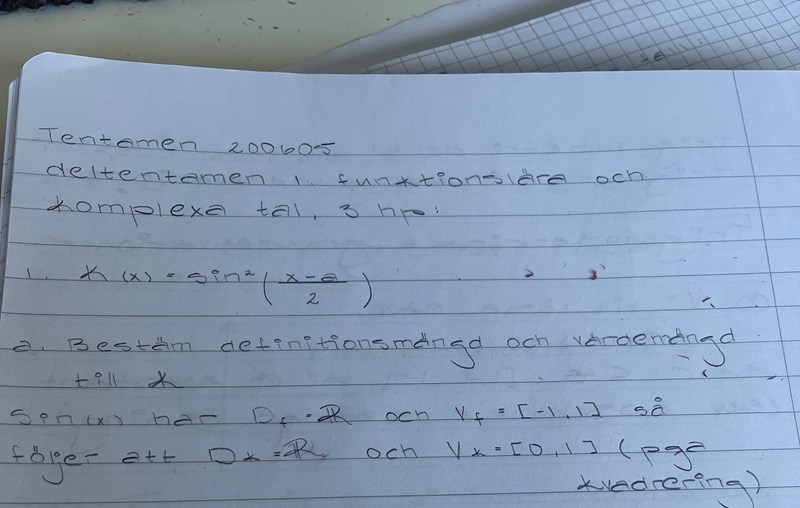 Tentamen 200605
deltentamen 1. funktionslära och
komplexa tal, 3 hp:
1. k(x) = sin² ( x-a / 2 )
a. Bestäm definitionsmängd och värdemängd
till k
Sin(x) har D_f = ℝ och V_f = [-1,1] så
följer att D_k = ℝ och V_k = [0,1] (pga
kvadrering)